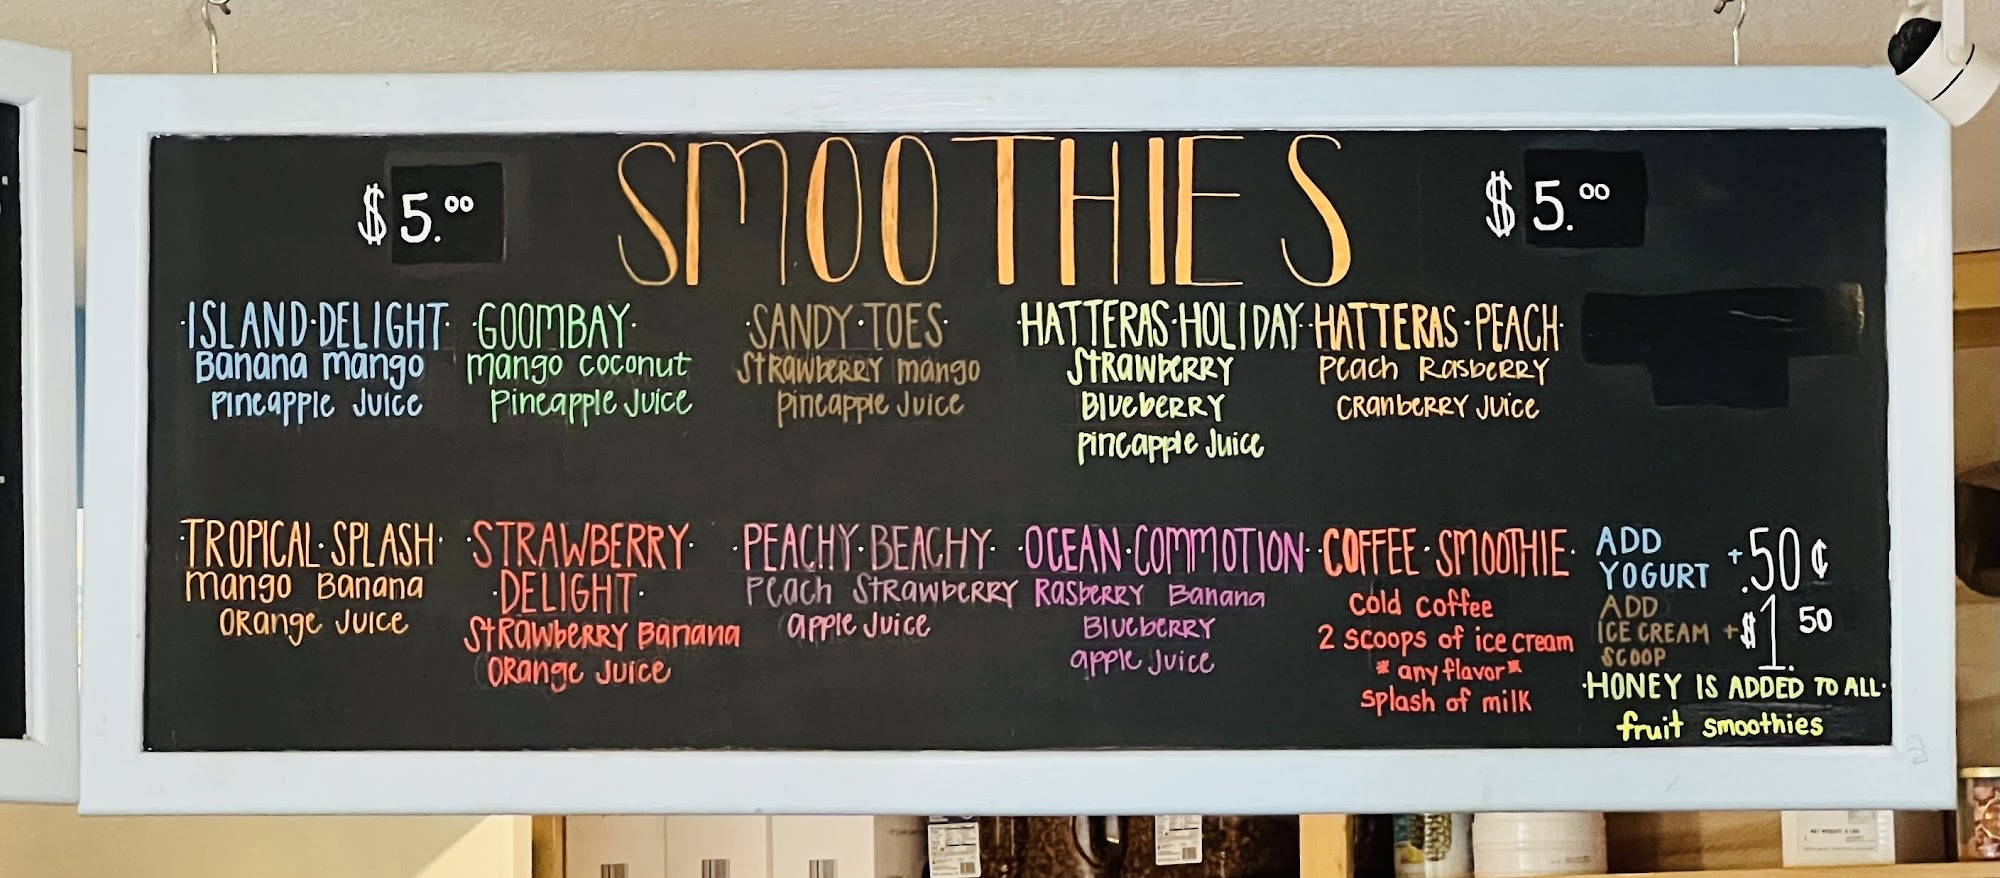 SMOOTHIES
$5.00
$5.00
·ISLAND·DELIGHT·
Banana mango
pineapple Juice
·GOOMBAY·
mango coconut
pineapple Juice
·SANDY·TOES·
Strawberry mango
pineapple Juice
·HATTERAS·HOLIDAY·
Strawberry
Blueberry
pineapple Juice
·HATTERAS·PEACH·
Peach Rasberry
Cranberry Juice
·TROPICAL·SPLASH·
mango Banana
Orange Juice
·STRAWBERRY·
·DELIGHT·
Strawberry Banana
Orange Juice
·PEACHY·BEACHY·
Peach Strawberry
apple Juice
·OCEAN·COMMOTION·
Rasberry Banana
Blueberry
apple Juice
·COFFEE·SMOOTHIE·
Cold Coffee
2 scoops of ice cream
*any flavor*
splash of milk
ADD
YOGURT +.50¢
ADD
ICE CREAM +$1.50
SCOOP
·HONEY IS ADDED TO ALL·
fruit smoothies